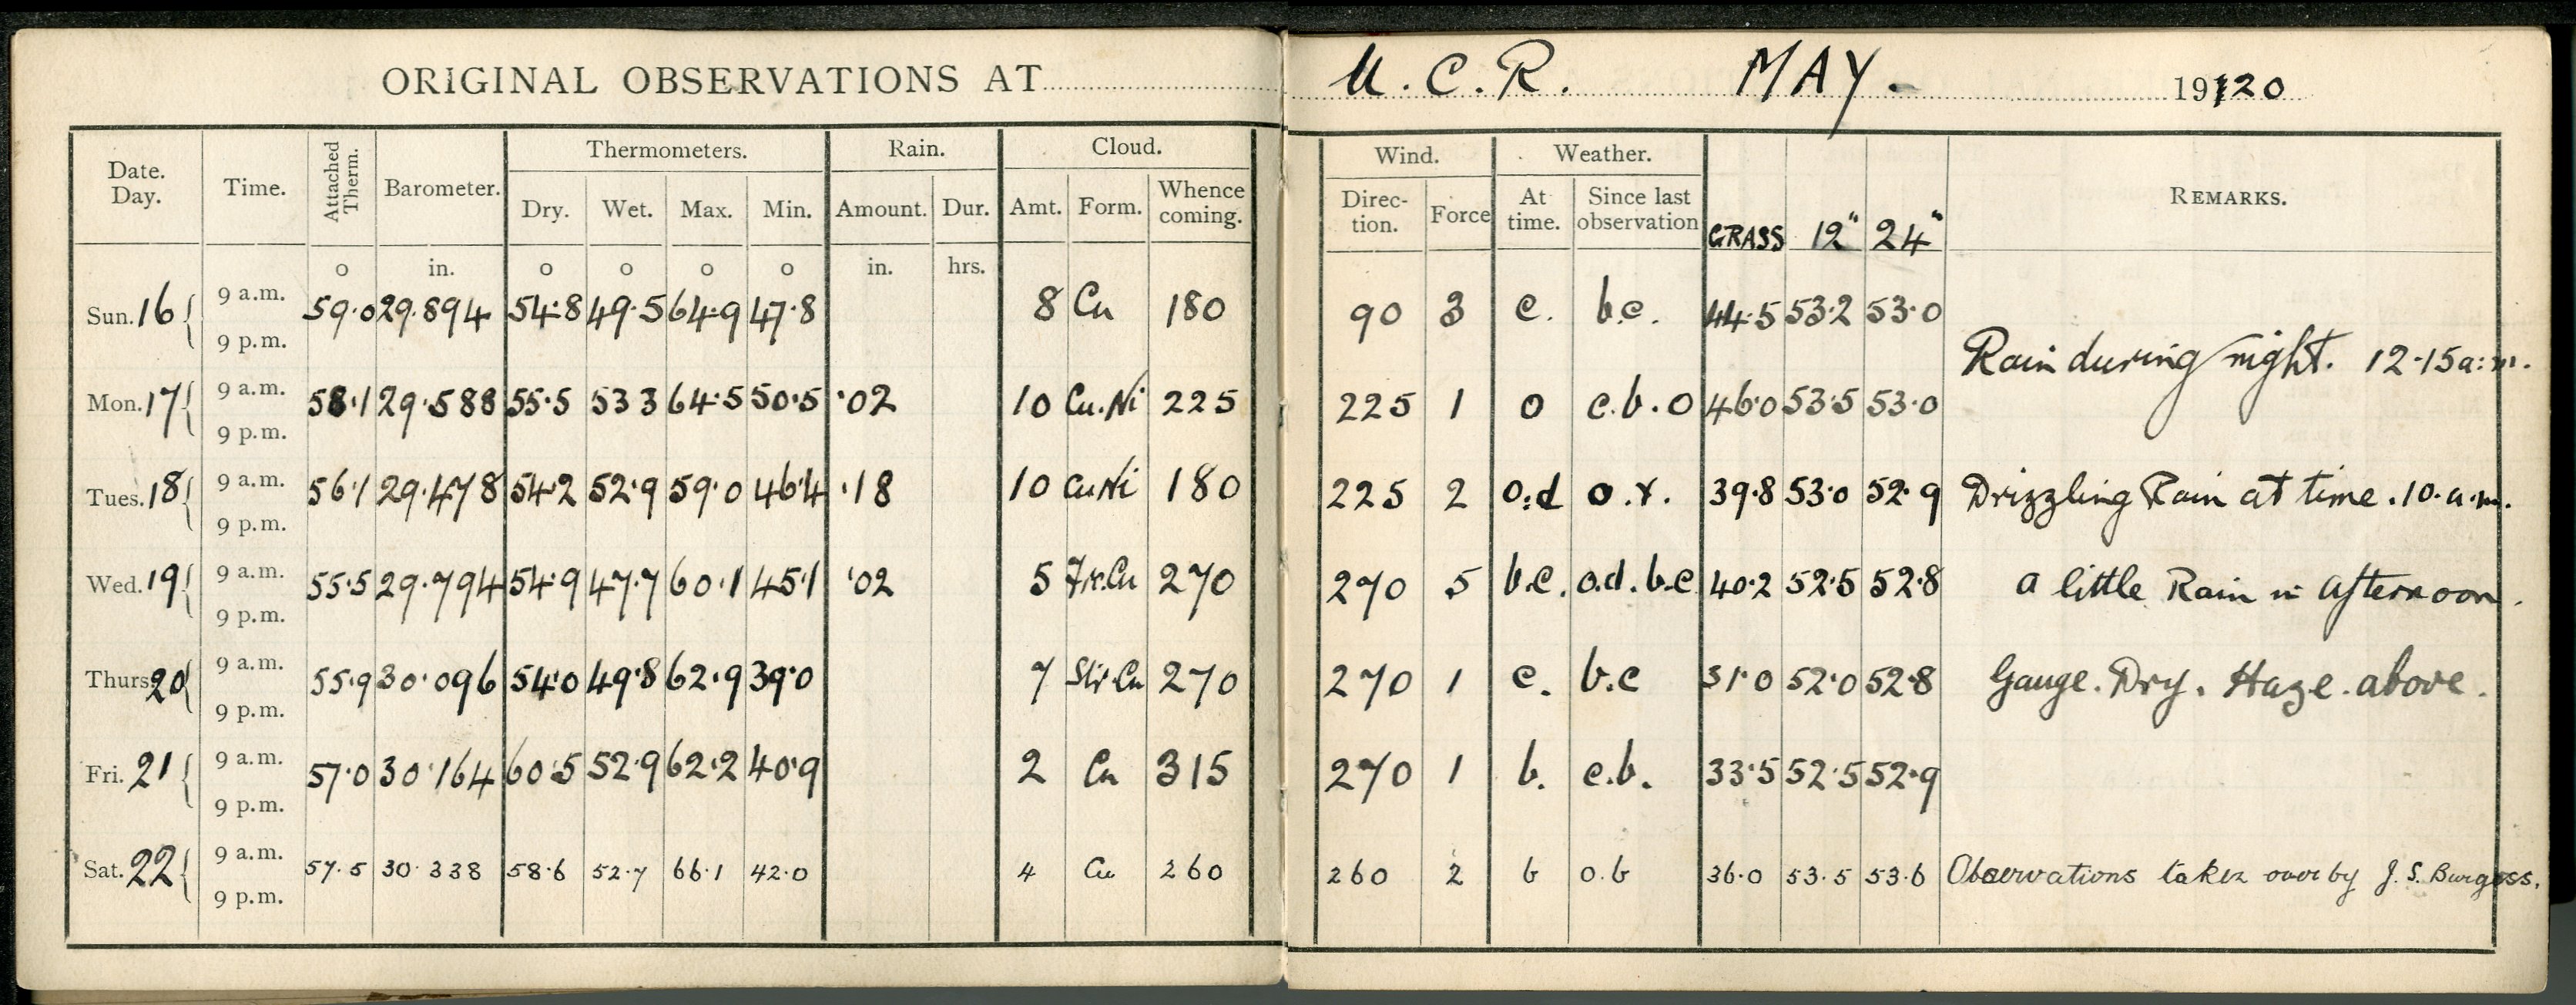 ORIGINAL OBSERVATIONS AT U.C.R. MAY. 19120
Date. Day. Time. Attached Therm. Barometer. Thermometers. Rain. Cloud. Wind. Weather. REMARKS.
Dry. Wet. Max. Min. Amount. Dur. Amt. Form. Whence coming. Direc-tion. Force At time. Since last observation GRASS 12" 24"
o in. o o o o in. hrs.
Sun. 16 9 a.m. 59.0 29.894 54.8 49.5 64.9 47.8 8 Cu 180 90 3 c. b.c. 44.5 53.2 53.0
9 p.m. Rain during night. 12.15 a.m.
Mon. 17 9 a.m. 58.1 29.588 55.5 53 3 64.5 50.5 .02 10 Cu.Ni 225 225 1 o c.b.o 46.0 53.5 53.0
9 p.m.
Tues. 18 9 a.m. 56.1 29.478 54.2 52.9 59.0 46.4 .18 10 Cu.Ni 180 225 2 o.d o.r. 39.8 53.0 52.9 Drizzling Rain at time. 10.a.m.
9 p.m.
Wed. 19 9 a.m. 55.5 29.794 54.9 47.7 60.1 45.1 .02 5 Fr.Cu 270 270 5 b.c. o.d.b.c 40.2 52.5 52.8 a little Rain in afternoon.
9 p.m.
Thurs 20 9 a.m. 55.9 30.096 54.0 49.8 62.9 39.0 7 Str.Cu 270 270 1 c. b.c 31.0 52.0 52.8 Gauge. Dry. Haze. above.
9 p.m.
Fri. 21 9 a.m. 57.0 30.164 60.5 52.9 62.2 40.9 2 Cu 315 270 1 b. c.b. 33.5 52.5 52.9
9 p.m.
Sat. 22 9 a.m. 57.5 30.338 58.6 52.7 66.1 42.0 4 Cu 260 260 2 b o.b 36.0 53.5 53.6 Observations taken over by J. S. Burgess.
9 p.m.